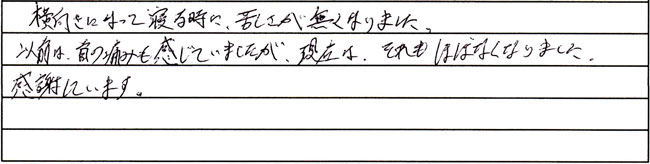 横向きになって寝る時に、苦しさが無くなりました。
以前は、首の痛みも感じていましたが、現在は、それもほぼなくなりました。
感謝しています。